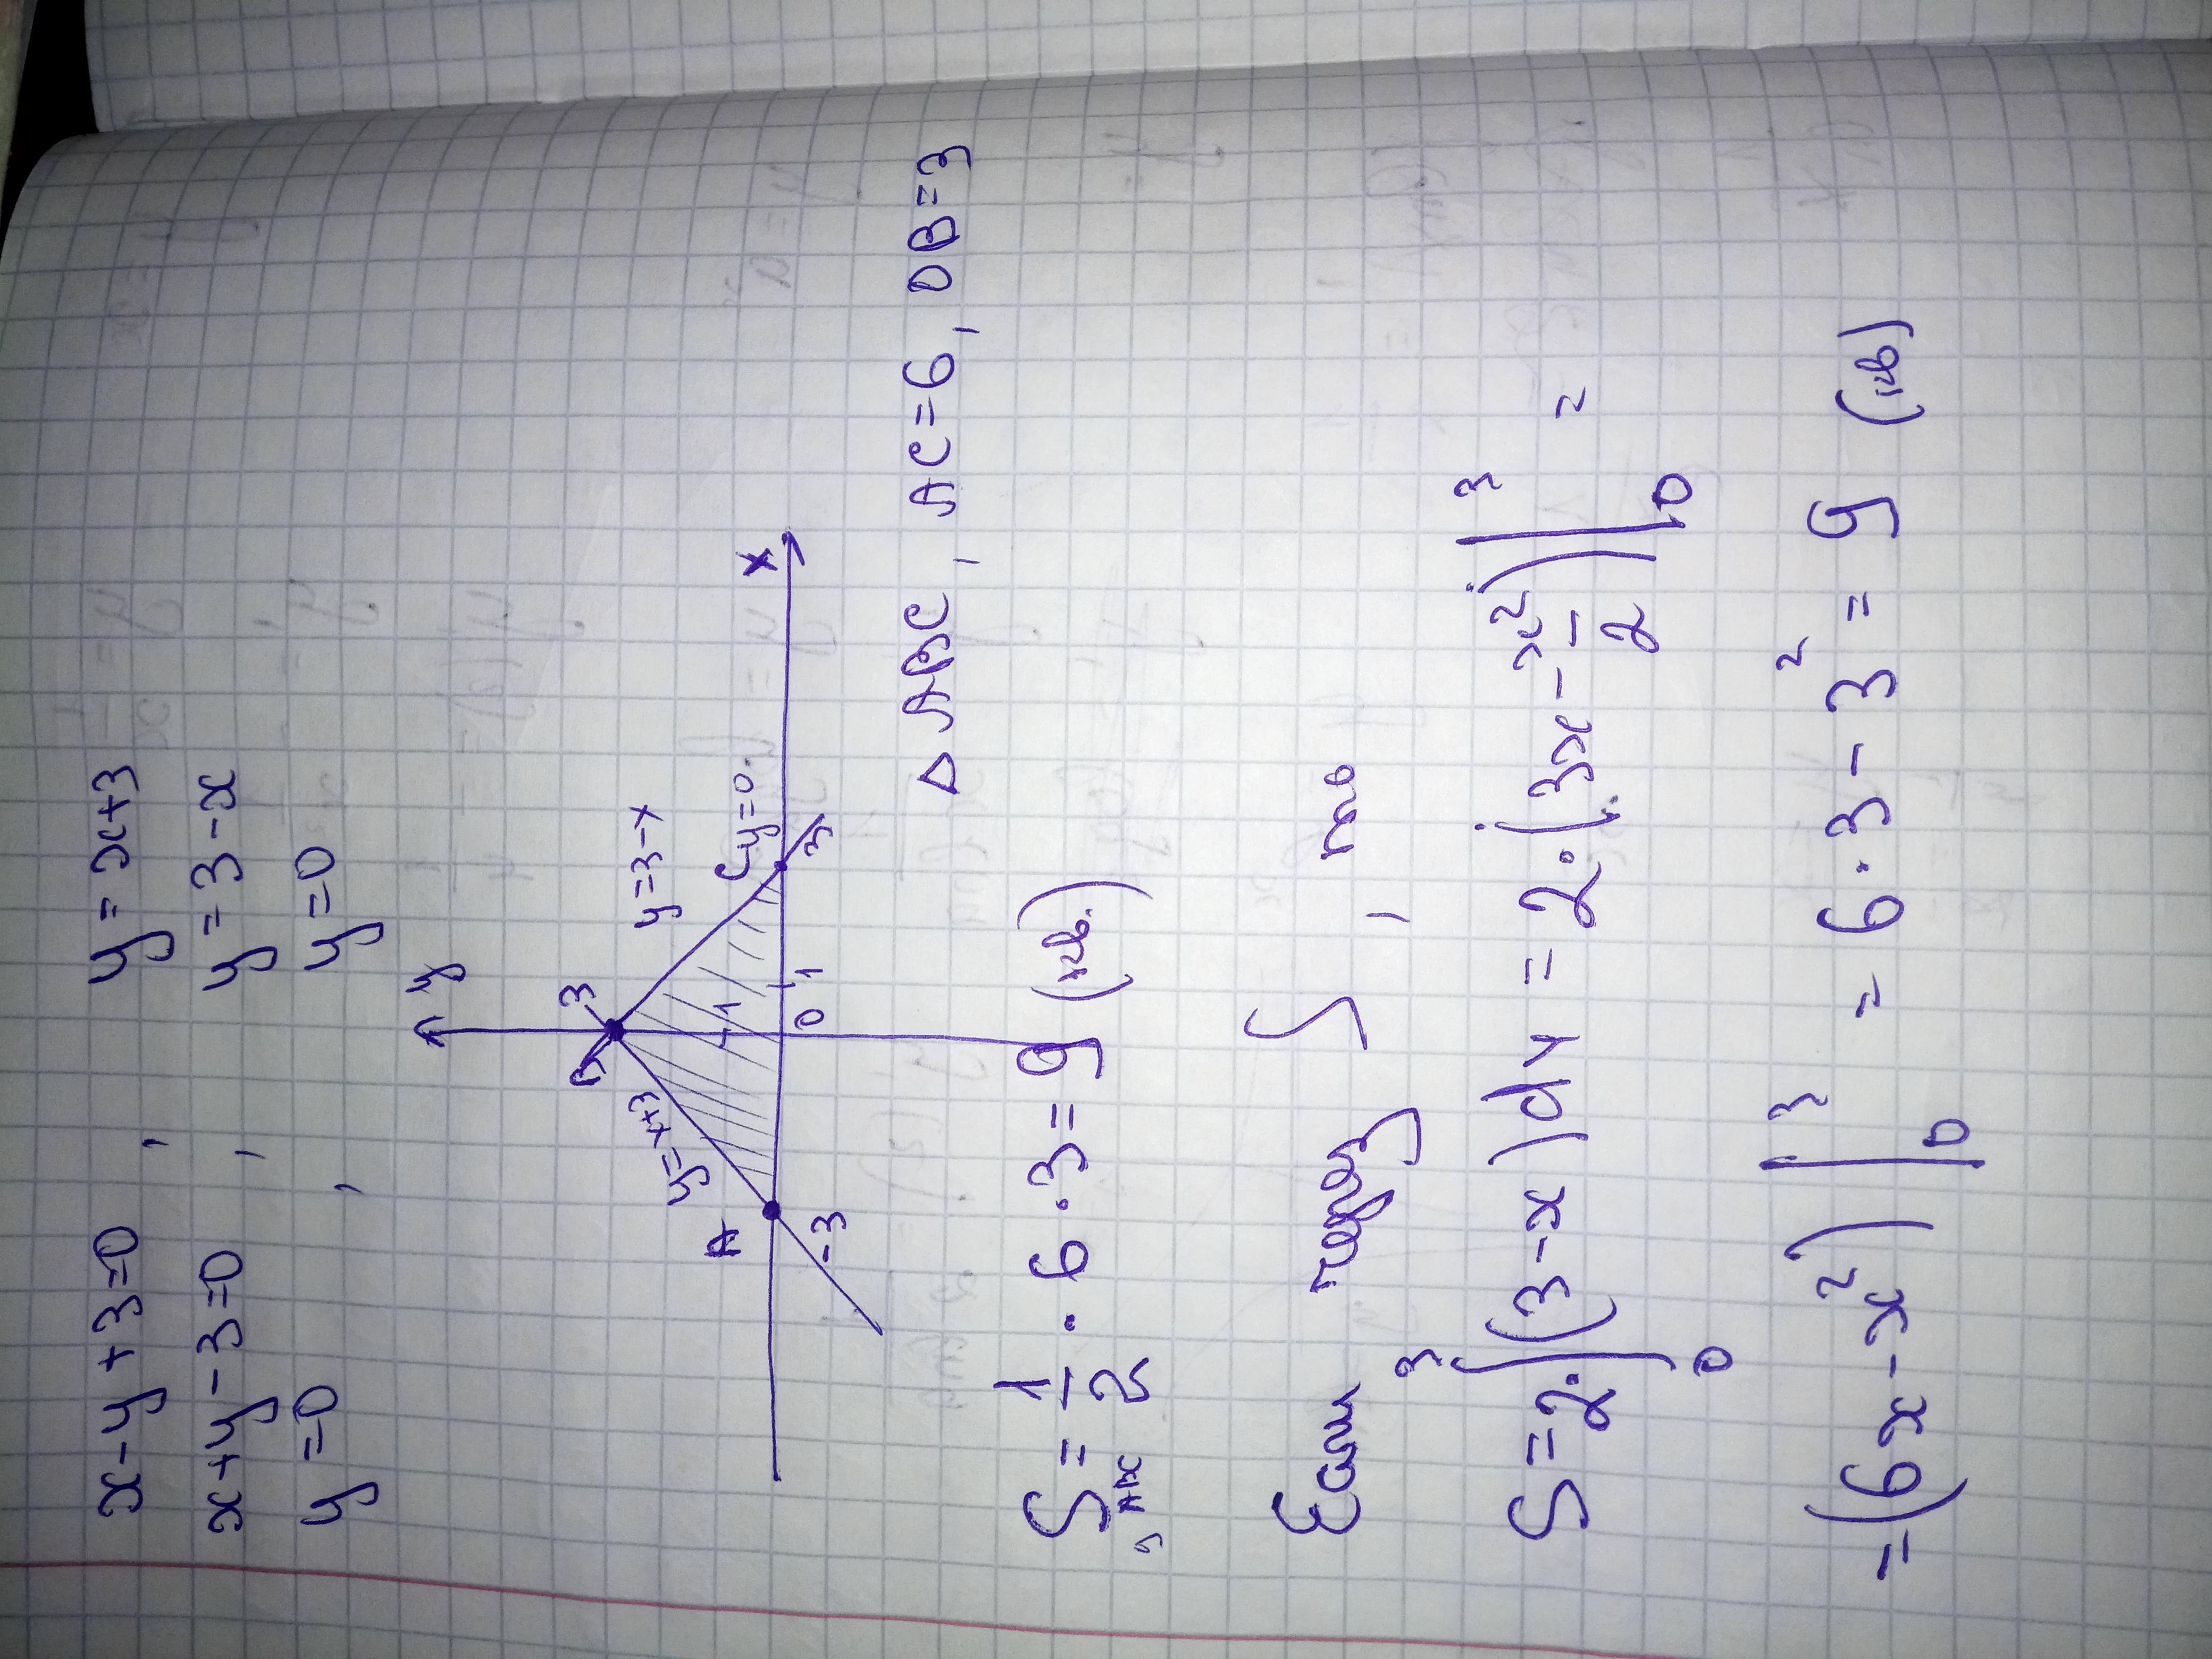 x-y+3=0, y=x+3
x+y-3=0, y=3-x
y=0, y=0
y
B 3
y=x+3 y=3-x
A 1 C y=0 x
-3 0 1 3
△ABC, AC=6, OB=3
S = 1/2 · 6 · 3 = 9 (ед.)
Если через ∫, то
S = 2·∫₀³(3-x)dx = 2·(3x - x²/2)|₀³ =
= (6x - x²)|₀³ = 6·3 - 3² = 9 (ед)